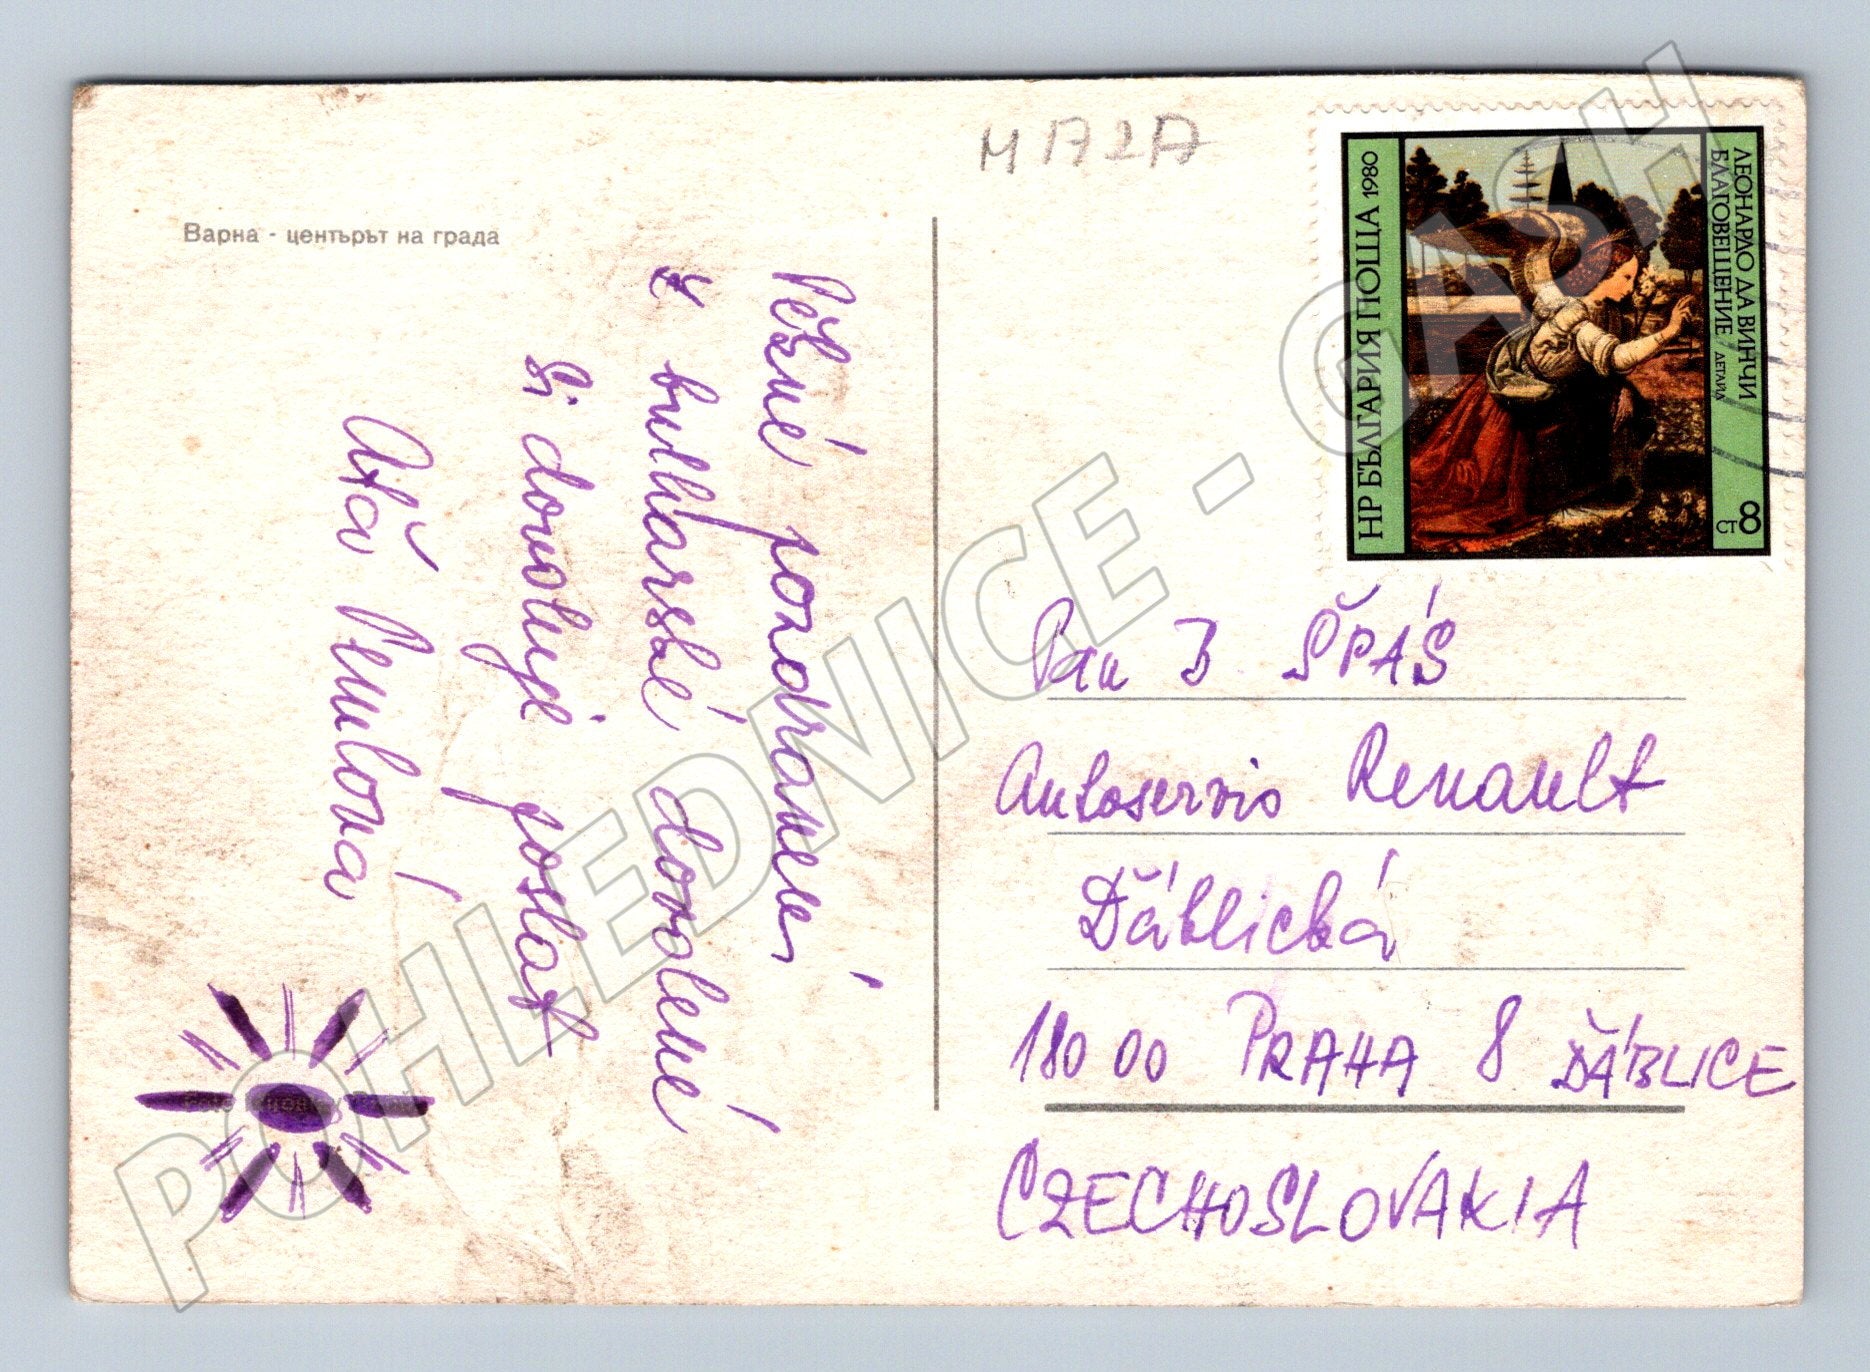 Варна - центърът на града
M 17217
НР БЪЛГАРИЯ ПОЩА 1980
ЛЕОНАРДО ДА ВИНЧИ
БЛАГОВЕЩЕНИЕ ДЕТАЙЛ
8 СТ
Pěkné pozdravení
z bulharské dovolené
si dovoluje poslat
Pan ŠPÁS
Autoservis Renault
Ďáblická
180 00 PRAHA 8 ĎÁBLICE
CZECHOSLOVAKIA
POHLEDNICE - GASH